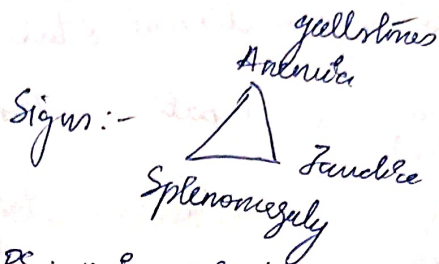 gallstones
Anemia
Signs :-
Jaundice
Splenomegaly